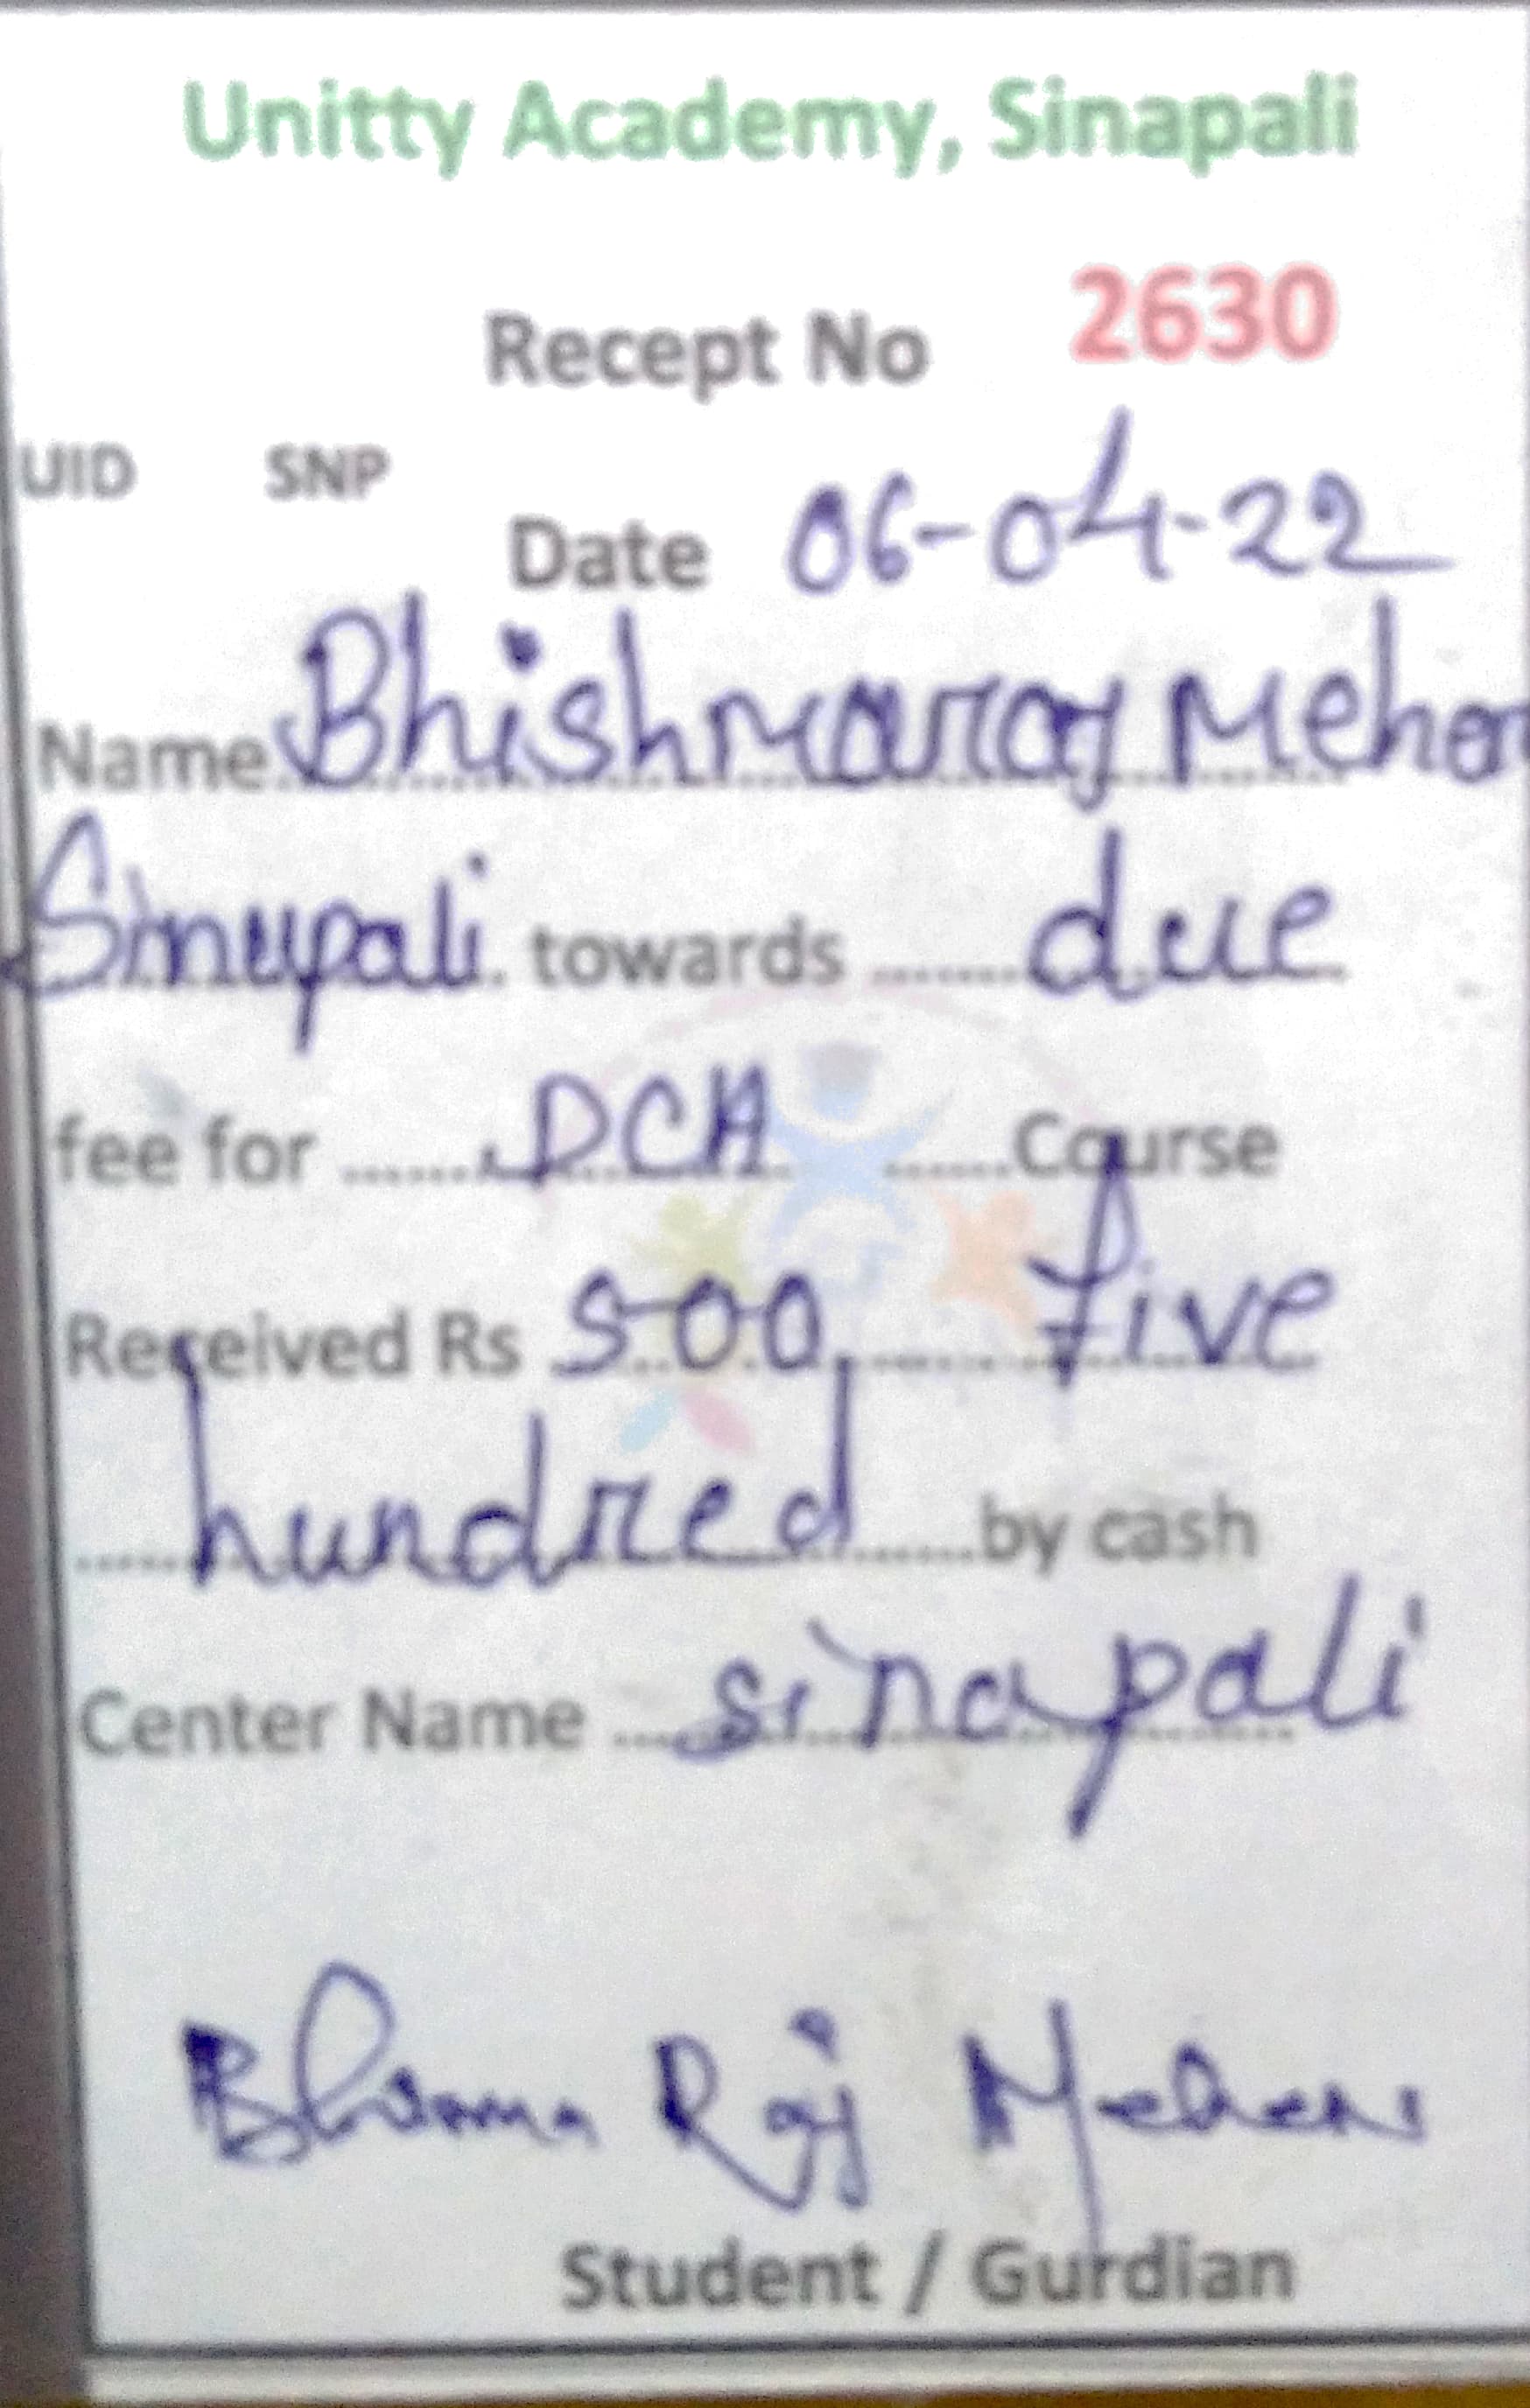 Unitty Academy, Sinapali
Recept No 2630
UID SNP
Date 06-04-22
Name Bhishmaraj Meher
Sinapali towards ........ due
fee for ........ DCA ........ Course
Received Rs 500 ........ five
........ hundred ........ by cash
Center Name .... sinapali
Bhisma Raj Meher
Student / Gurdian